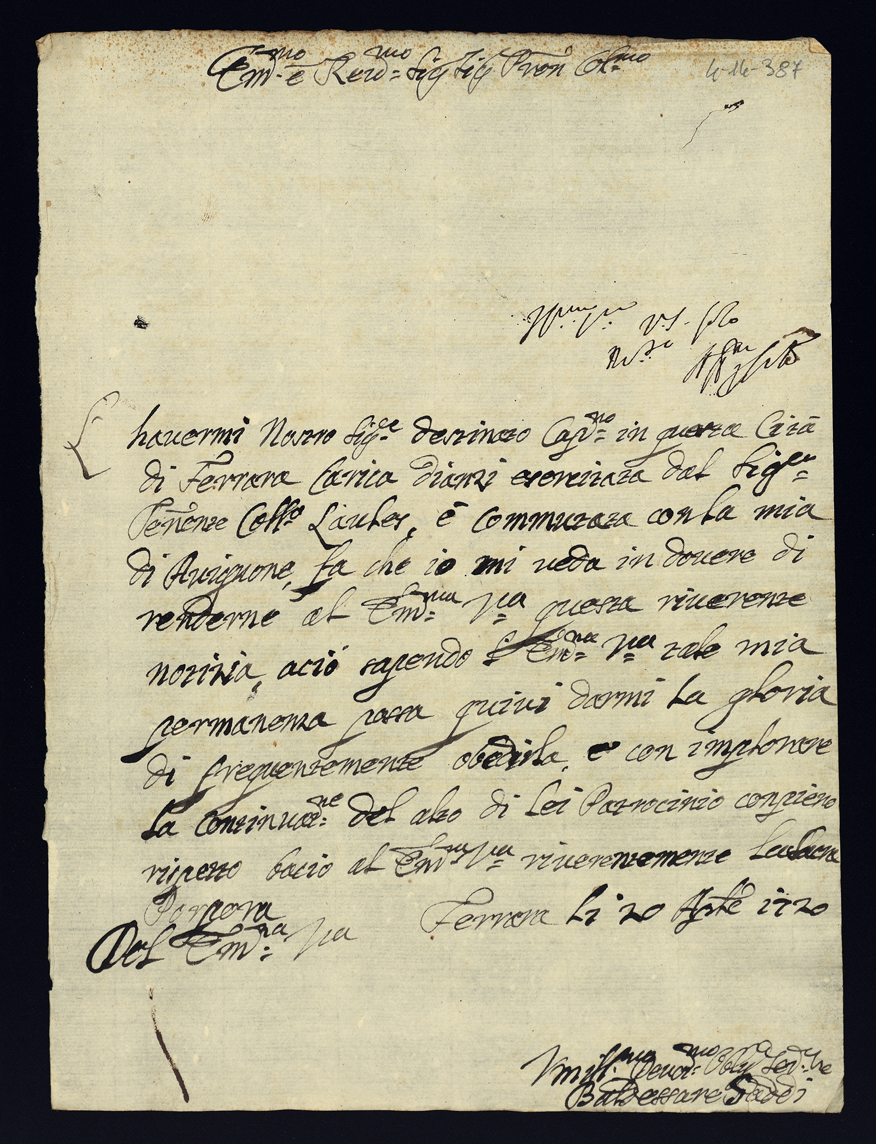 Em.mo e Rev.mo Sig Sig Pron Col.mo
4-14-387
L'
havermi Nostro Sig.re destinato Cap.no in questa Città
di Ferrara Carica dianzi esercitata dal Sig.re
Tenente Coll.o Laules, e commutata con la mia
di Avignone, fa che io mi veda in dovere di
renderne al Em.ma V.ra questa riverente
notizia, aciò sapendo l'Em.na V.ra tale mia
permanenza possa quivi darmi la gloria
di frequentemente obedirla, e con implorare
la continuat.ne del alto di Lei Patrocinio con pieno
rispetto bacio al Em.na V.ra riverentemente la Sacra
Porpora
Del Em.na V.ra Ferrara Li 20 1720
Umil.mo Devot.mo Obl Ser.re
Baldessare Gaddi